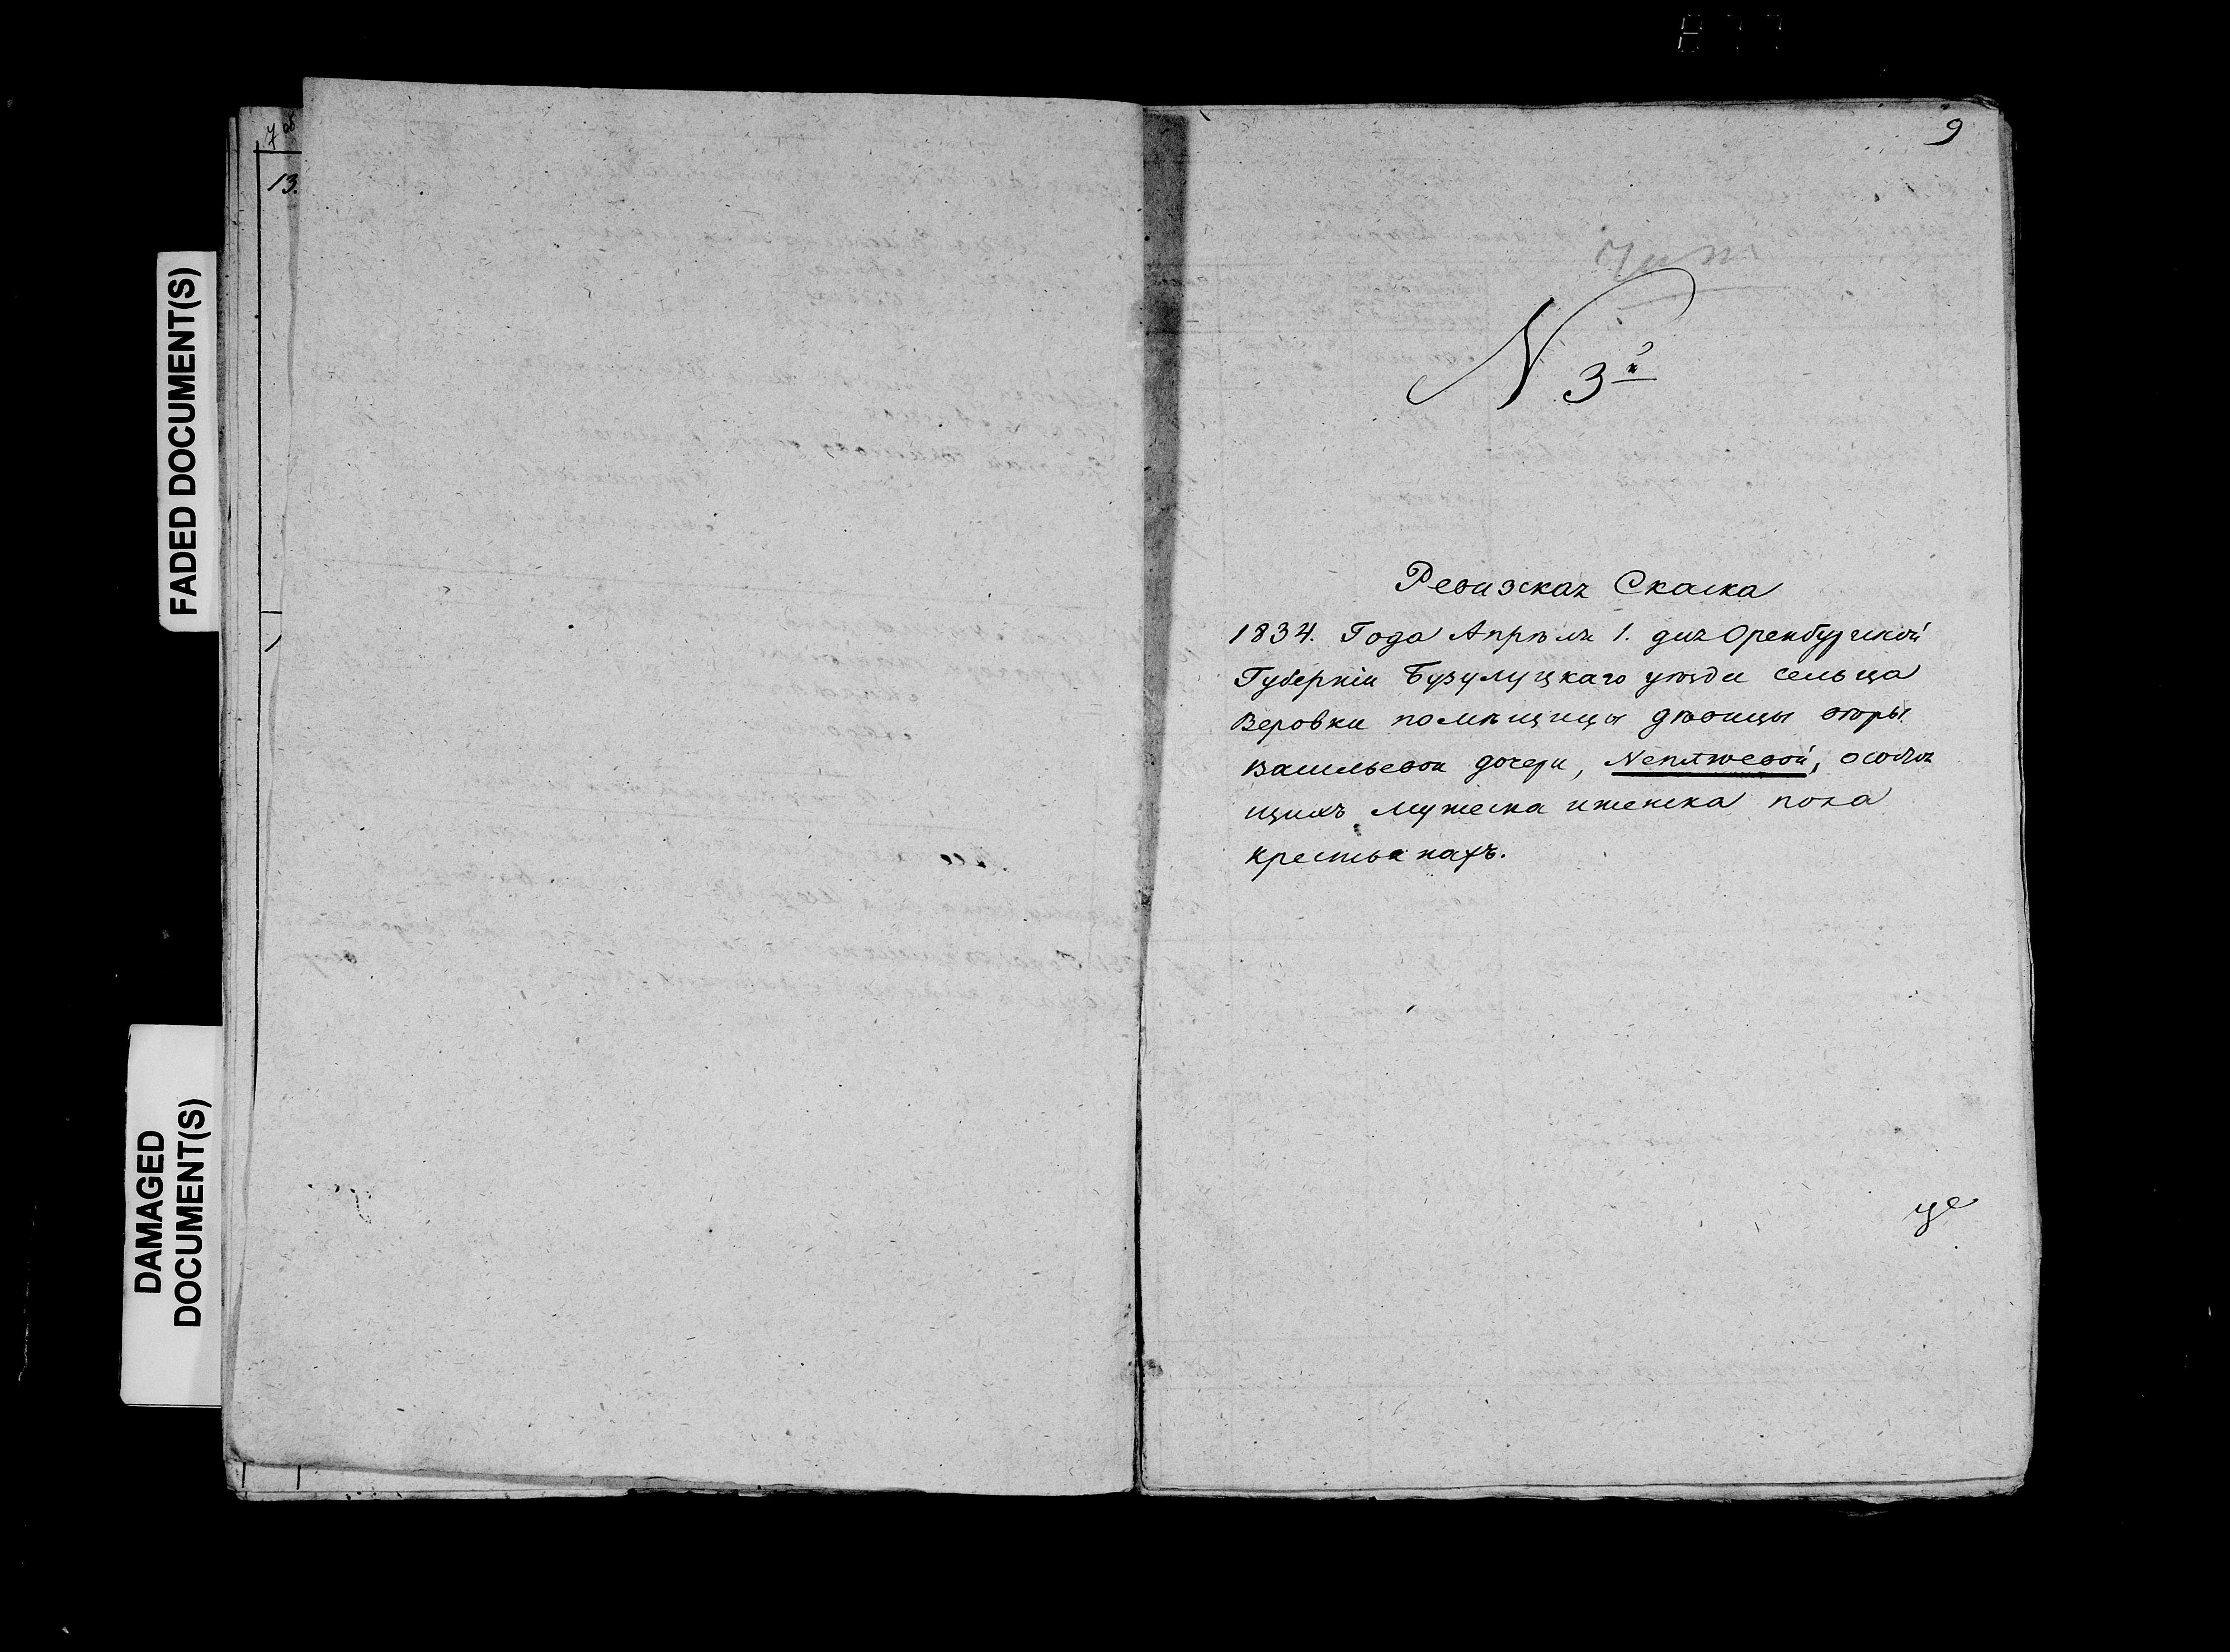 7 об
13.
FADED DOCUMENT(S)
DAMAGED
DOCUMENT(S)
9
N 3й
Ревизская Скаска
1834. Года Апрѣля 1. дня Оренбургской
Губерніи Бузулуцкаго уѣзда сельца
Веровки помѣщицы дѣвицы Вѣры
Васильевой дочери, Неплюевой, о состоя
щихъ мужеска и женска пола
крестьянахъ.